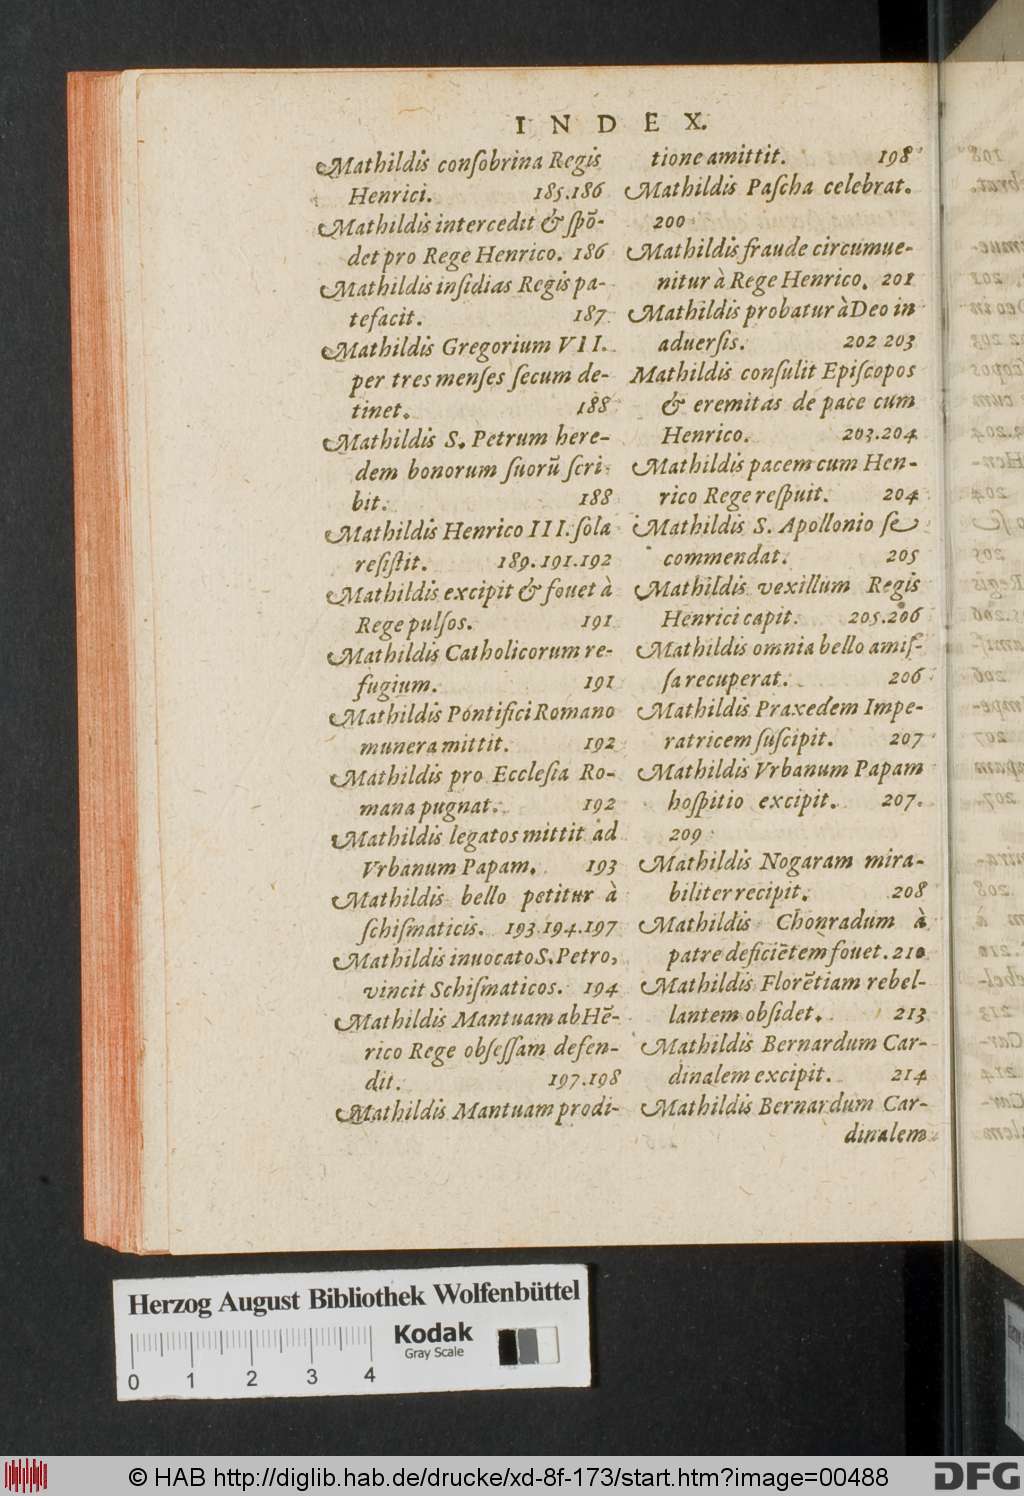 INDEX.
Mathildis conſobrina Regis
Henrici. 185.186
Mathildis intercedit & ſpõ-
det pro Rege Henrico. 186
Mathildis inſidias Regis pa-
tefacit. 187
Mathildis Gregorium VII.
per tres menſes ſecum de-
tinet. 188
Mathildis S. Petrum here-
dem bonorum ſuorũ ſcri-
bit. 188
Mathildis Henrico III. ſola
reſiſtit. 189.191.192
Mathildis excipit & fouet à
Rege pulſos. 191
Mathildis Catholicorum re-
fugium. 191
Mathildis Pontifici Romano
munera mittit. 192
Mathildis pro Eccleſia Ro-
mana pugnat. 192
Mathildis legatos mittit ad
Vrbanum Papam. 193
Mathildis bello petitur à
ſchiſmaticis. 193.194.197
Mathildis inuocato S. Petro,
vincit Schiſmaticos. 194
Mathildis Mantuam ab Hẽ-
rico Rege obſeſſam defen-
dit. 197.198
Mathildis Mantuam prodi-
tione amittit. 198
Mathildis Paſcha celebrat.
200
Mathildis fraude circumue-
nitur à Rege Henrico. 201
Mathildis probatur à Deo in
aduerſis. 202 203
Mathildis conſulit Epiſcopos
& eremitas de pace cum
Henrico. 203.204
Mathildis pacem cum Hen-
rico Rege reſpuit. 204
Mathildis S. Apollonio ſe
commendat. 205
Mathildis vexillum Regis
Henrici capit. 205.206
Mathildis omnia bello amiſ-
ſa recuperat. 206
Mathildis Praxedem Impe-
ratricem ſuſcipit. 207
Mathildis Vrbanum Papam
hoſpitio excipit. 207.
209
Mathildis Nogaram mira-
biliter recipit. 208
Mathildis Chonradum à
patre deficiẽtem fouet. 210
Mathildis Florẽtiam rebel-
lantem obſidet. 213
Mathildis Bernardum Car-
dinalem excipit. 214
Mathildis Bernardum Car-
dinalem
Herzog August Bibliothek Wolfenbüttel
Kodak
Gray Scale
0 1 2 3 4
© HAB http://diglib.hab.de/drucke/xd-8f-173/start.htm?image=00488
DFG